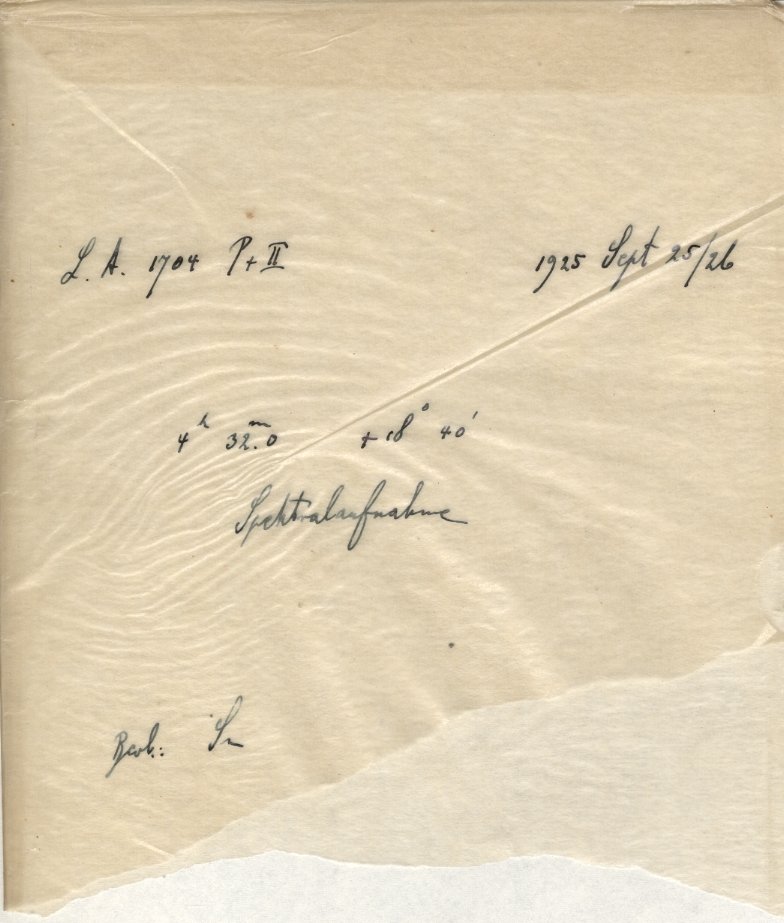 L. A. 1704 P+II 1925 Sept 25/26
4ʰ 32ᵐ.0 +18° 40'
Spektralaufnahme
Beob.: Sn